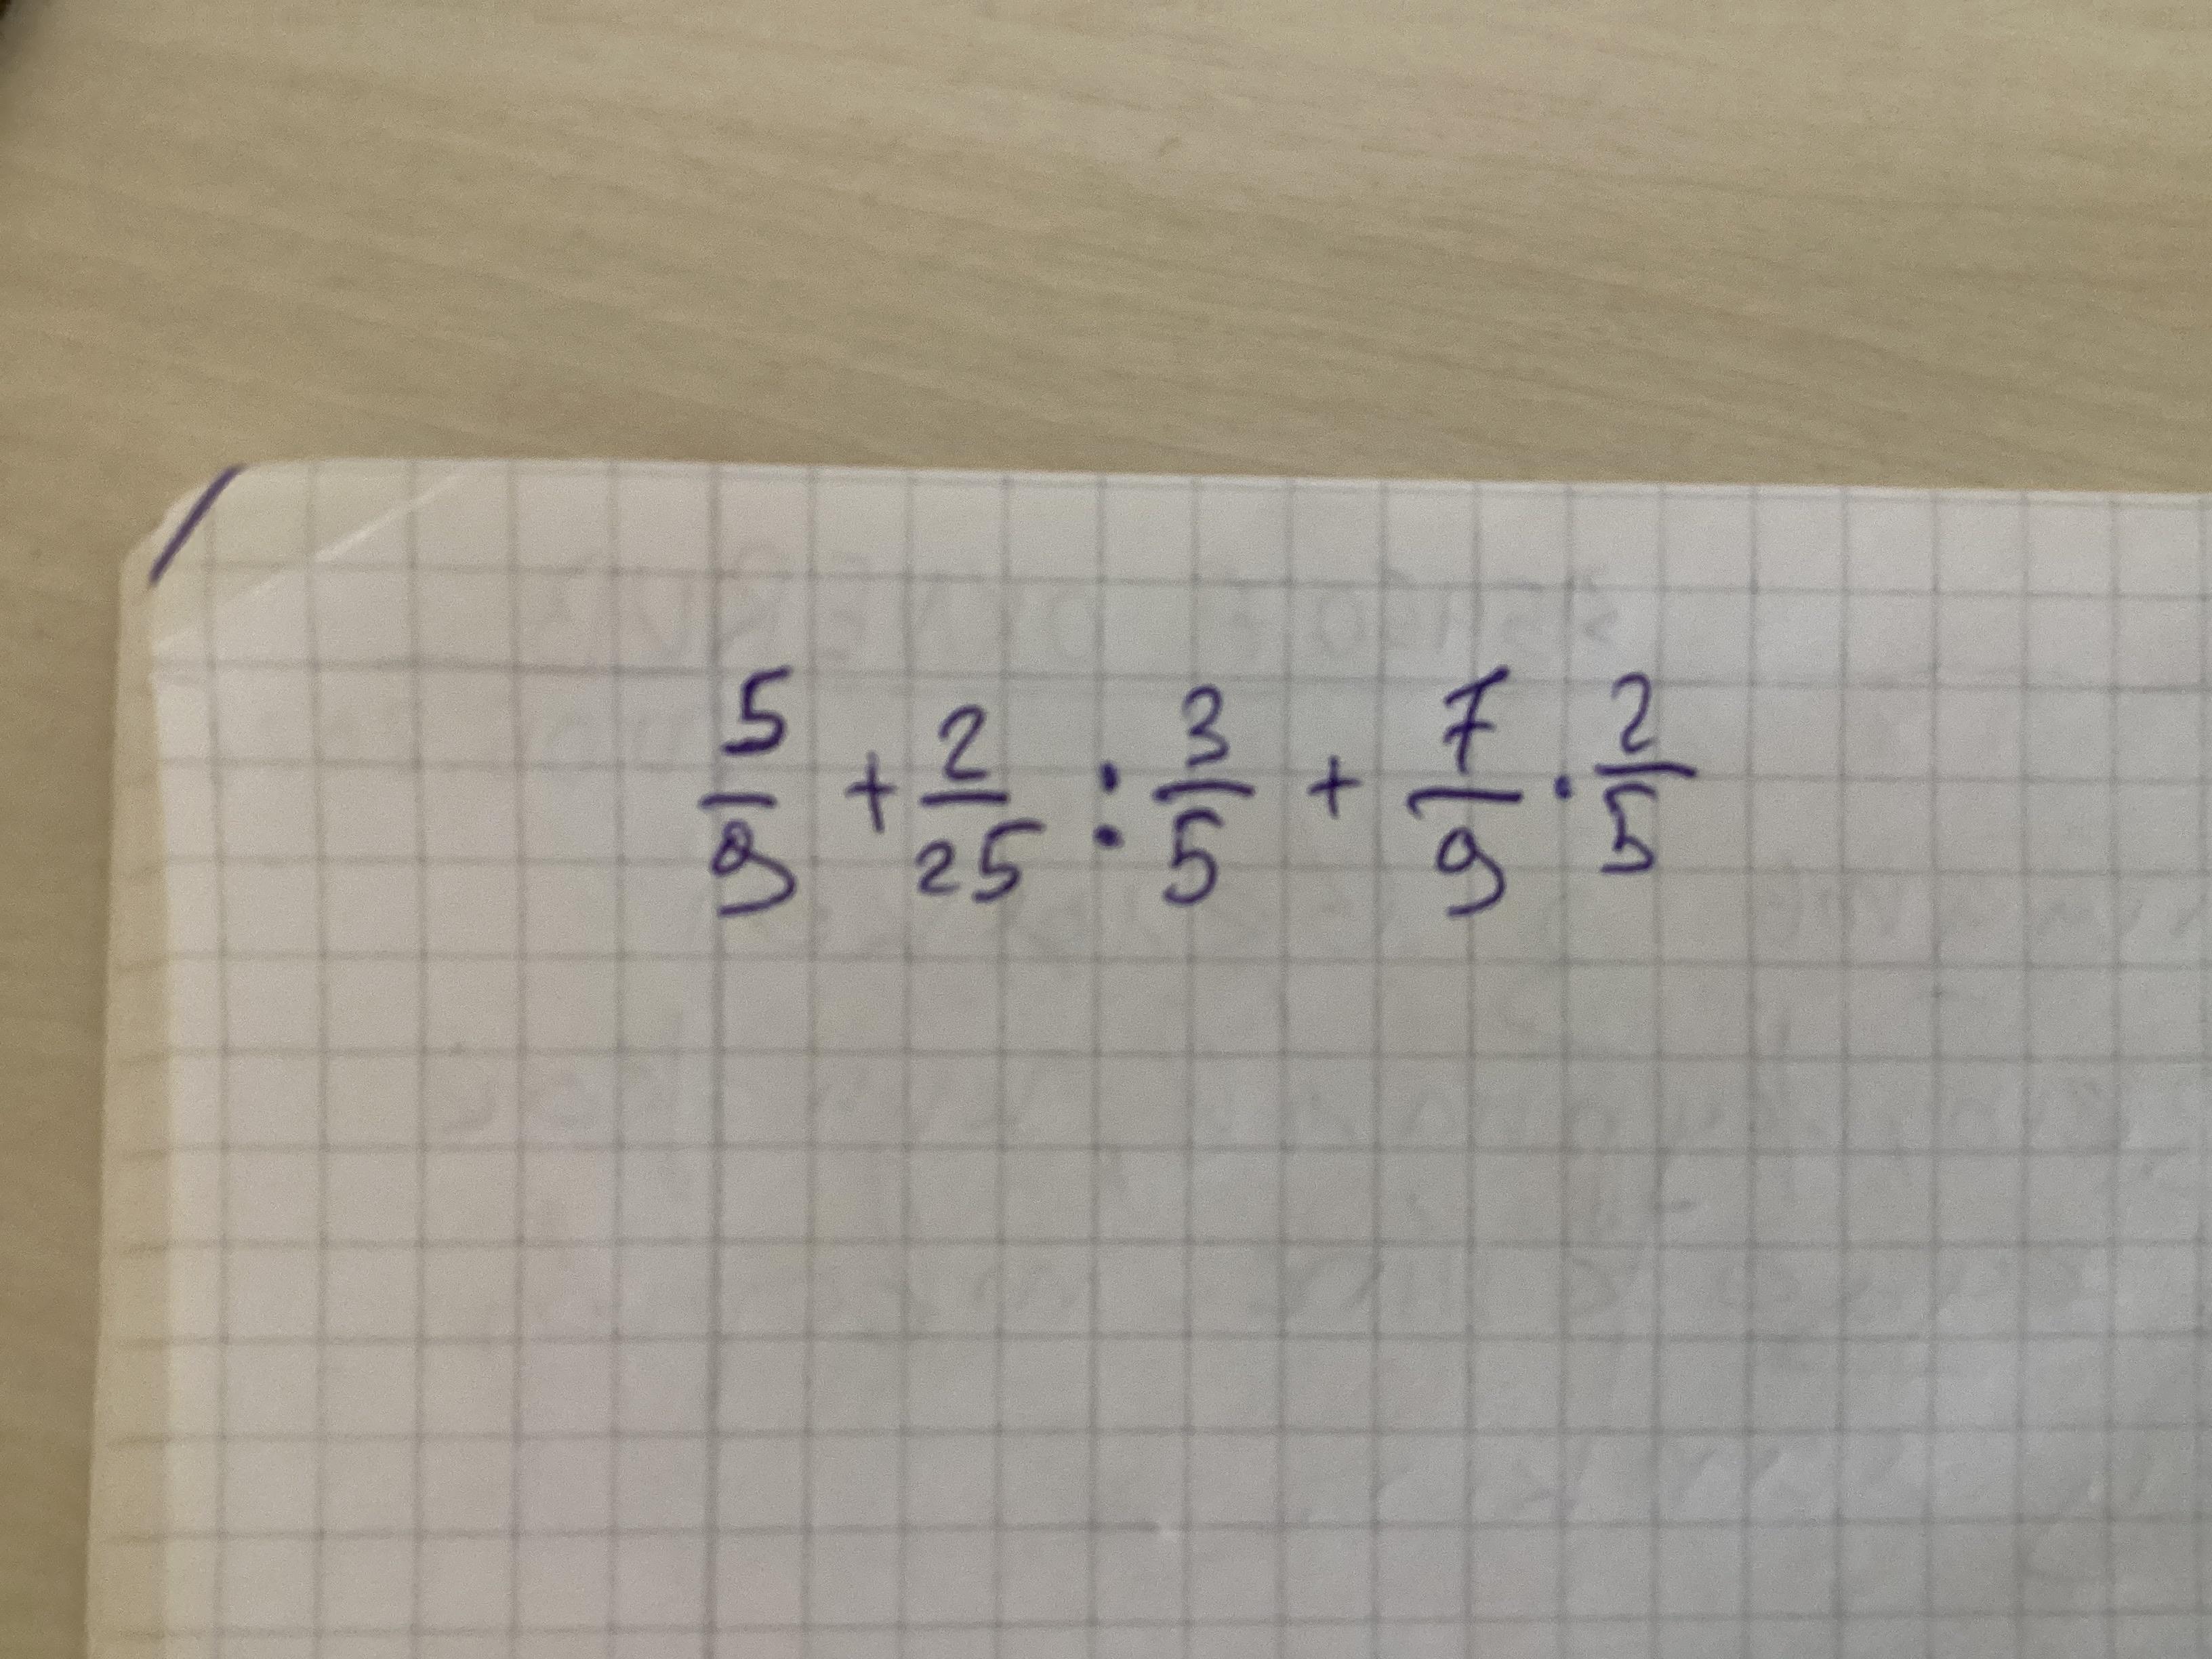 5/9 + 2/25 : 3/5 + 7/9 · 2/5